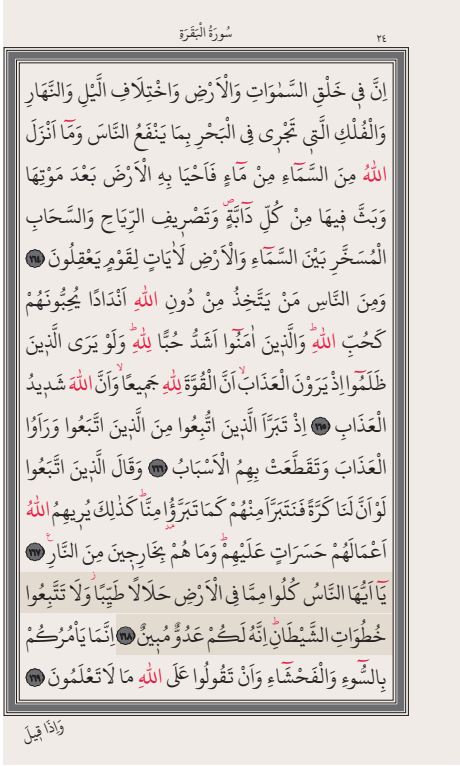 سُورَةُ الْبَقَرَةِ
٢٤
اِنَّ ف۪ي خَلْقِ السَّمٰوَاتِ وَالْاَرْضِ وَاخْتِلَافِ الَّيْلِ وَالنَّهَارِ
وَالْفُلْكِ الَّت۪ي تَجْر۪ي فِي الْبَحْرِ بِمَا يَنْفَعُ النَّاسَ وَمَٓا اَنْزَلَ
اللّٰهُ مِنَ السَّمَٓاءِ مِنْ مَٓاءٍ فَاَحْيَا بِهِ الْاَرْضَ بَعْدَ مَوْتِهَا
وَبَثَّ ف۪يهَا مِنْ كُلِّ دَٓابَّةٍۖ وَتَصْر۪يفِ الرِّيَاحِ وَالسَّحَابِ
الْمُسَخَّرِ بَيْنَ السَّمَٓاءِ وَالْاَرْضِ لَاٰيَاتٍ لِقَوْمٍ يَعْقِلُونَ ﴿١٦٤﴾
وَمِنَ النَّاسِ مَنْ يَتَّخِذُ مِنْ دُونِ اللّٰهِ اَنْدَادًا يُحِبُّونَهُمْ
كَحُبِّ اللّٰهِۜ وَالَّذ۪ينَ اٰمَنُٓوا اَشَدُّ حُبًّا لِلّٰهِۜ وَلَوْ يَرَى الَّذ۪ينَ
ظَلَمُٓوا اِذْ يَرَوْنَ الْعَذَابَۙ اَنَّ الْقُوَّةَ لِلّٰهِ جَم۪يعًاۙ وَاَنَّ اللّٰهَ شَد۪يدُ
الْعَذَابِ ﴿١٦٥﴾ اِذْ تَبَرَّاَ الَّذ۪ينَ اتُّبِعُوا مِنَ الَّذ۪ينَ اتَّبَعُوا وَرَاَوُا
الْعَذَابَ وَتَقَطَّعَتْ بِهِمُ الْاَسْبَابُ ﴿١٦٦﴾ وَقَالَ الَّذ۪ينَ اتَّبَعُوا
لَوْ اَنَّ لَنَا كَرَّةً فَنَتَبَرَّاَ مِنْهُمْ كَمَا تَبَرَّؤُ۫ا مِنَّاۜ كَذٰلِكَ يُر۪يهِمُ اللّٰهُ
اَعْمَالَهُمْ حَسَرَاتٍ عَلَيْهِمْۜ وَمَا هُمْ بِخَارِج۪ينَ مِنَ النَّارِ۟ ﴿١٦٧﴾
يَٓا اَيُّهَا النَّاسُ كُلُوا مِمَّا فِي الْاَرْضِ حَلَالًا طَيِّبًاۘ وَلَا تَتَّبِعُوا
خُطُوَاتِ الشَّيْطَانِۜ اِنَّهُ لَكُمْ عَدُوٌّ مُب۪ينٌ ﴿١٦٨﴾ اِنَّمَا يَاْمُرُكُمْ
بِالسُّٓوءِ وَالْفَحْشَٓاءِ وَاَنْ تَقُولُوا عَلَى اللّٰهِ مَا لَا تَعْلَمُونَ ﴿١٦٩﴾
وَاِذَا ق۪يلَ